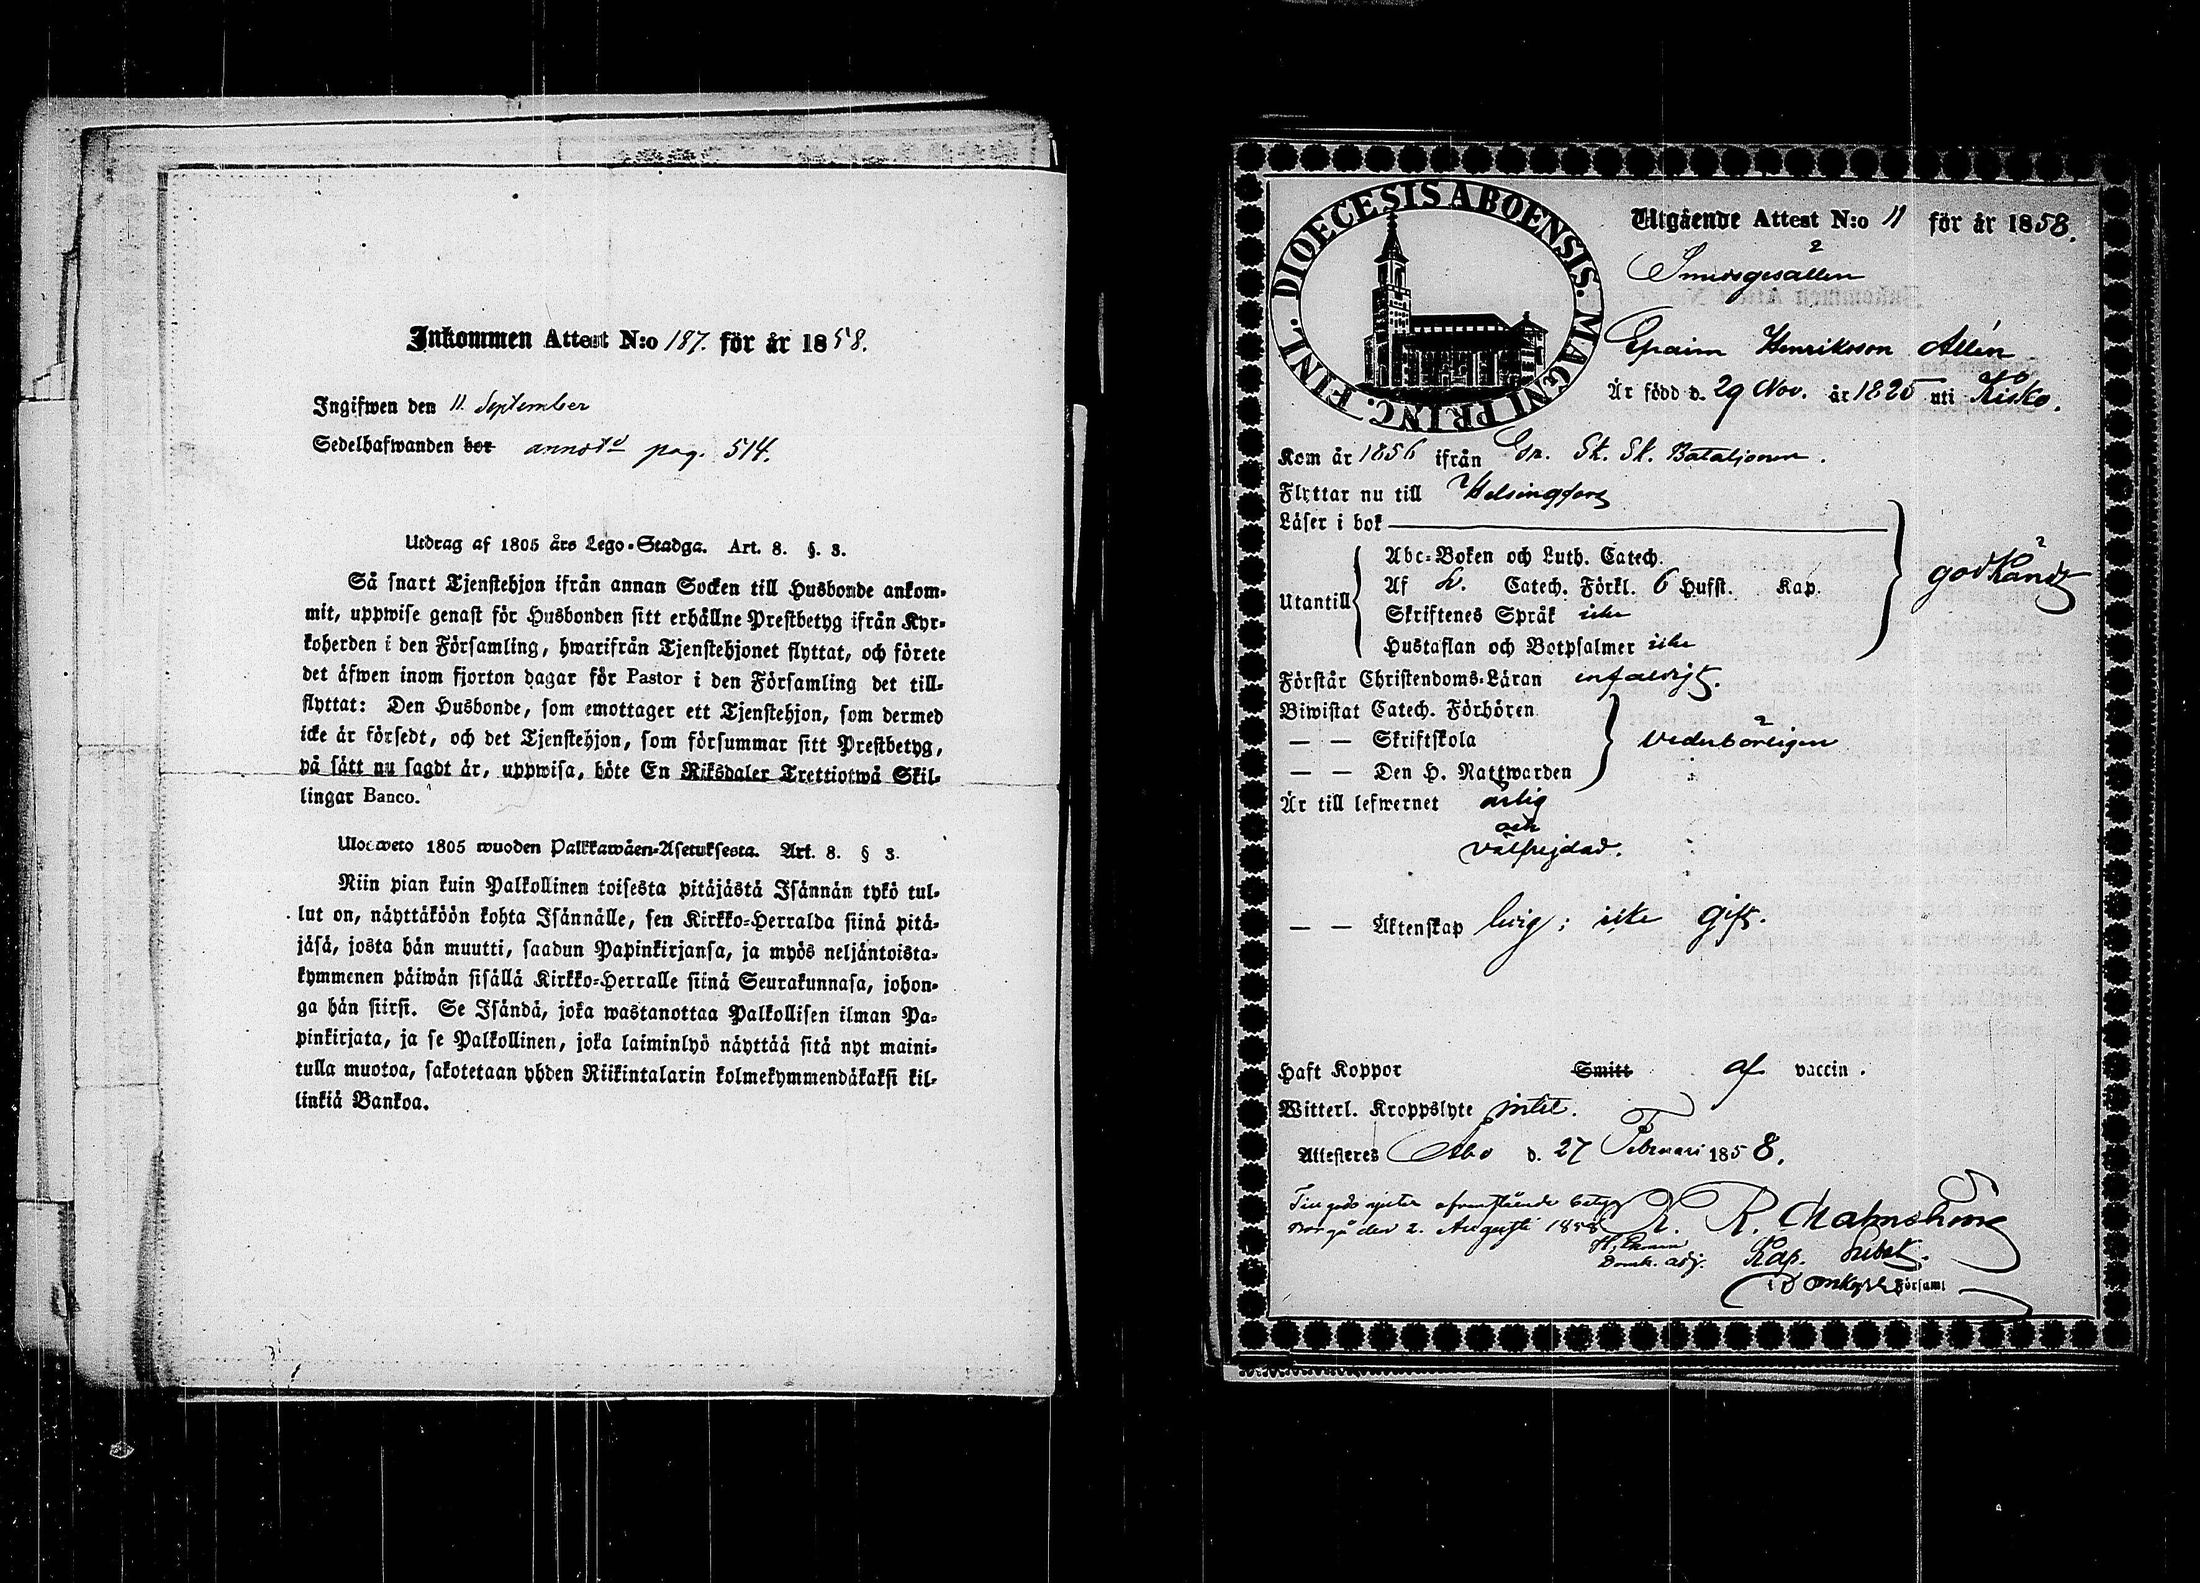 Inkommen Attest N:o 187. för år 1858.
Ingifwen den 11 September
Sedelhafwanden bor annotd pag. 514.
Utdrag af 1805 års Lego-Stadga. Art. 8. §. 3.
Så snart Tjenstehjon ifrån annan Socken till Husbonde ankom-
mit, uppwise genast för Husbonden sitt erhållne Prestbetyg ifrån Kyr-
koherden i den Församling, hwarifrån Tjenstehjonet flyttat, och förete
det äfwen inom fjorton dagar för Pastor i den Församling det till-
flyttat: Den Husbonde, som emottager ett Tjenstehjon, som dermed
icke är försedt, och det Tjenstehjon, som försummar sitt Prestbetyg,
på sätt nu sagdt är, uppwisa, böte En Riksdaler Trettiotwå Skil-
lingar Banco.
Ulosweto 1805 wuoden Palkkawäen-Asetuksesta. Art. 8. § 3.
Niin pian kuin Palkollinen toisesta pitäjästä Isännän tykö tul-
lut on, näyttäköön kohta Isännälle, sen Kirkko-Herralda siinä pitä-
jäsä, josta hän muutti, saadun Papinkirjansa, ja myös neljäntoista-
kymmenen päiwän sisällä Kirkko-Herralle siinä Seurakunnasa, johon-
ga hän siirsi. Se Isändä, joka wastanottaa Palkollisen ilman Pa-
pinkirjata, ja se Palkollinen, joka laiminlyö näyttää sitä nyt maini-
tulla muotoa, sakotetaan yhden Riikintalarin kolmekymmendäkaksi kil-
linkiä Bankoa.
DIOECESIS ABOENSIS. MAGNI PRINC. FINL.
Utgående Attest N:o 11 för år 1858.
Smedsgesällen
Epraim Henriksson Allén
Är född d. 29 Nov. år 1825 uti Kisko.
Kom år 1856 ifrån Gr. Sk. Sk. Bataljonen.
Flyttar nu till Helsingfors
Läser i bok
Abc-Boken och Luth. Catech.
Utantill Af L. Catech. Förkl. 6 Hufst. Kap. godkändt
Skriftenes Språk icke
Hustaflan och Botpsalmer icke
Förstår Christendoms-Läran enfaldigt.
Biwistat Catech. Förhören
— — Skriftskola vederbörligen
— — Den H. Nattwarden
Är till lefwernet ärlig
och
välfrejdad.
— — Äktenskap ledig; icke gift.
Haft Koppor Smitt af vaccin.
Witterl. Kroppslyte intet.
Attesteres Åbo d. 27 Februari 1858.
Till gods njuter ofvanstående betyg
Borgå den 2. Augusti 1858
Domk. adj.
K. R. Malmström
Kap. Subst.
i Domkyrko Församl